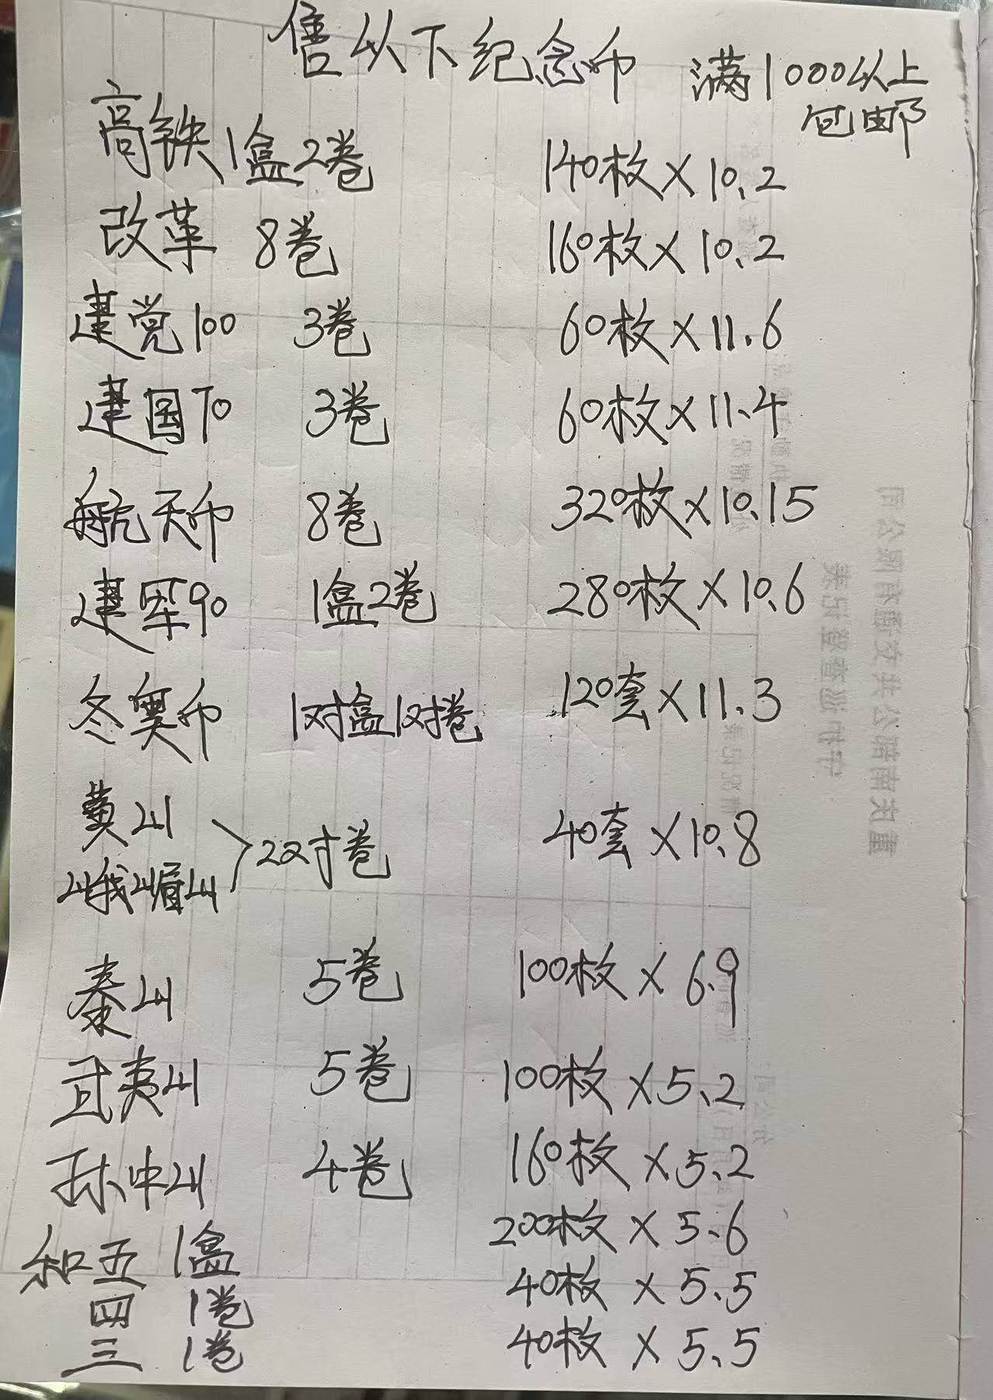 售以下纪念币 满1000以上
包邮
高铁1盒2卷 140枚×10.2
改革 8卷 160枚×10.2
建党100 3卷 60枚×11.6
建国70 3卷 60枚×11.4
航天币 8卷 320枚×10.15
建军90 1盒2卷 280枚×10.6
冬奥币 1对盒1对卷 120套×11.3
黄山
峨嵋山 >2对卷 40套×10.8
泰山 5卷 100枚×6.9
武夷山 5卷 100枚×5.2
孙中山 4卷 160枚×5.2
和五 1盒 200枚×5.6
四 1卷 40枚×5.5
三 1卷 40枚×5.5